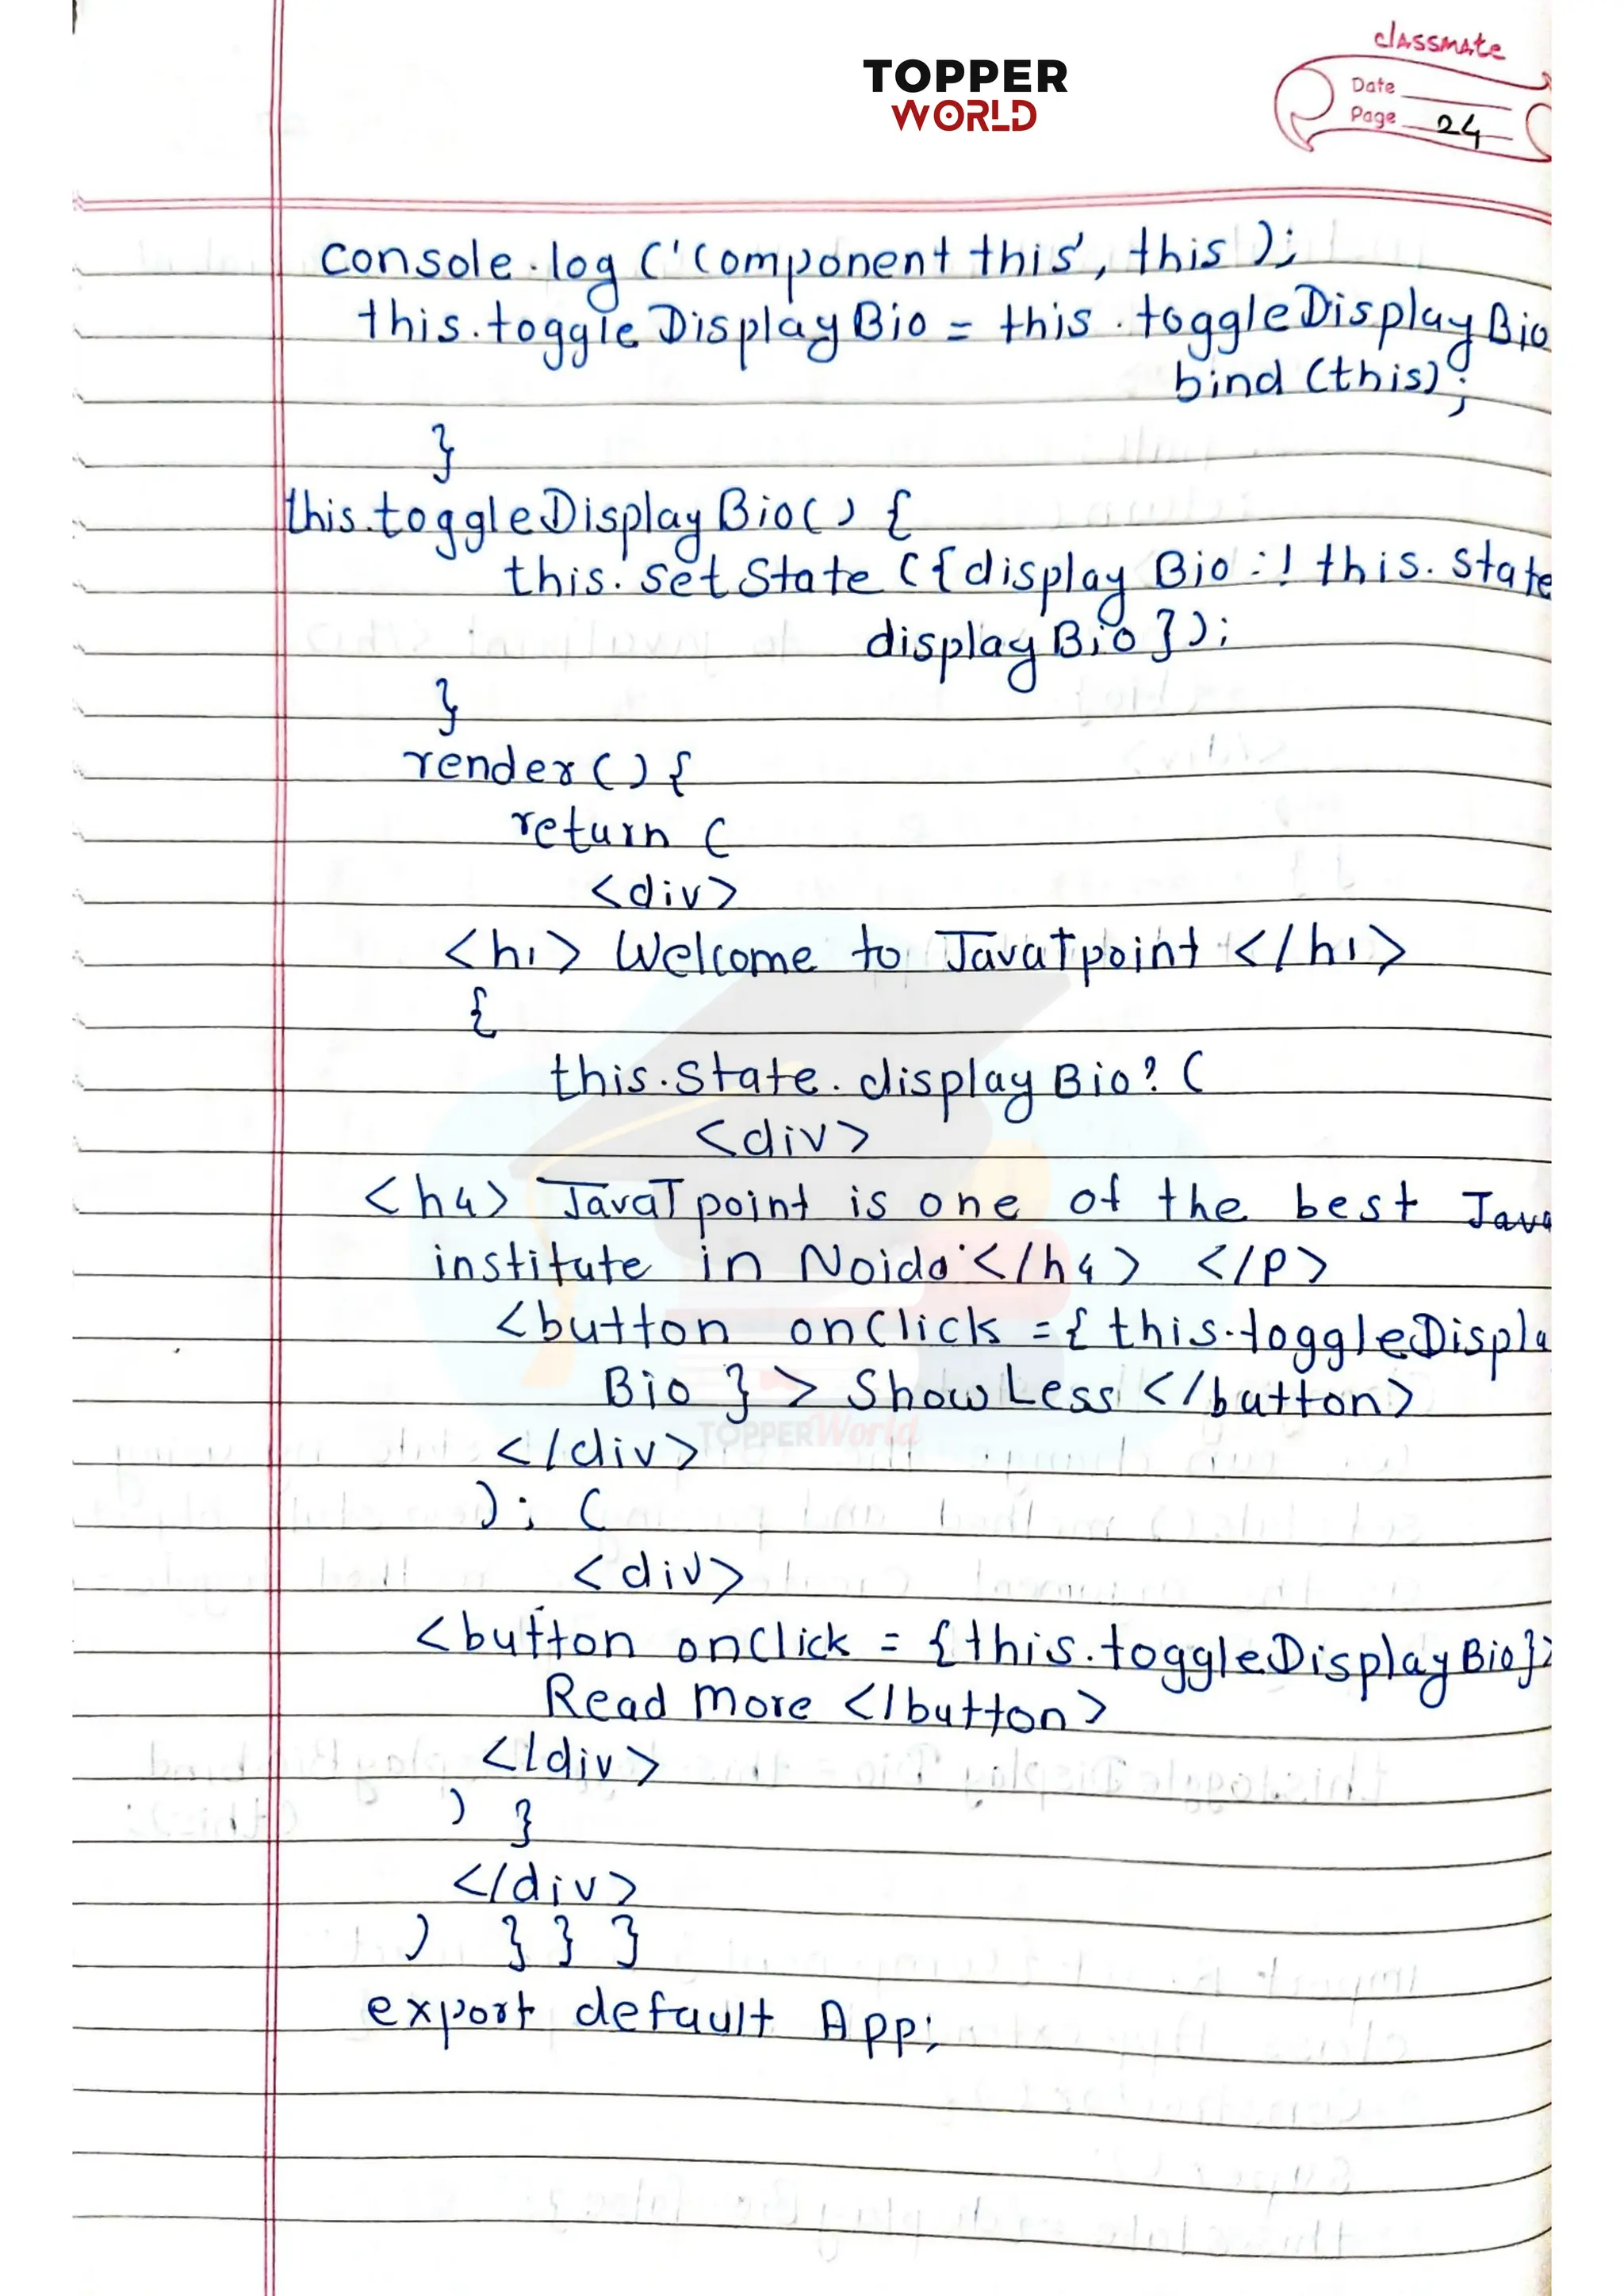 classmate
TOPPER
WORLD
Date
Page 24
console.log ('Component this', this );
this.toggleDisplayBio = this.toggleDisplayBio
bind (this);
}
this.toggleDisplayBio() {
this.setState ({displayBio :! this.state
displayBio });
}
render () {
return (
<div>
<h1> Welcome to JavaTpoint </h1>
{
this.state.displayBio? (
<div>
<h4> JavaTpoint is one of the best Java
institute in Noida </h4> </p>
<button onClick ={ this.toggleDispla
Bio } > Show Less </button>
TOPPERWorld
</div>
); (
<div>
<button onClick = {this.toggleDisplayBio}>
Read More </button>
</div>
) }
</div>
) } } }
export default App;